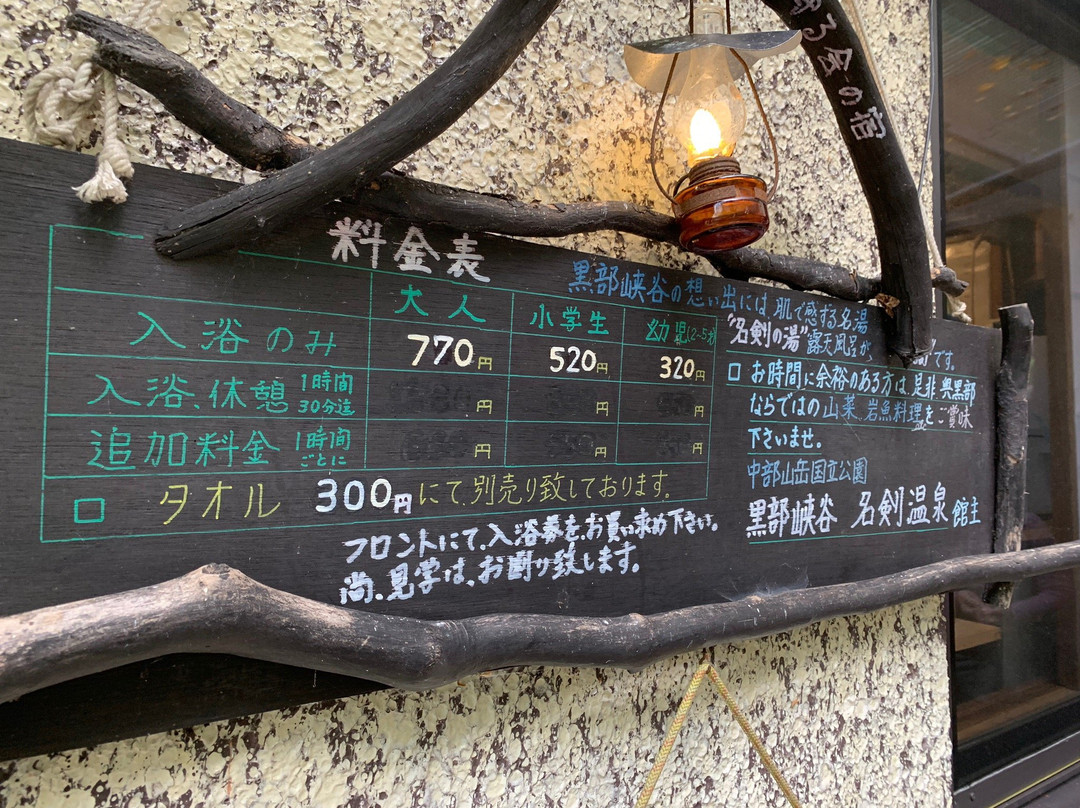 る会の宿
料金表
大人 小学生 幼児(2~5才)
入浴のみ 770円 520円 320円
入浴、休憩 1時間30分迄 円 円 円
追加料金 1時間ごとに 円 円 円
□ タオル 300円にて、別売り致しております。
フロントにて、入浴券を、お買い求め下さい。
尚、見学は、お断り致します。
黒部峡谷の想い出には、肌で感する名湯
"名剣の湯"露天風呂が です。
□ お時間に余裕のある方は、是非奥黒部
ならではの山菜、岩魚料理をご賞味
下さいませ。
中部山岳国立公園
黒部峡谷 名剣温泉 館主